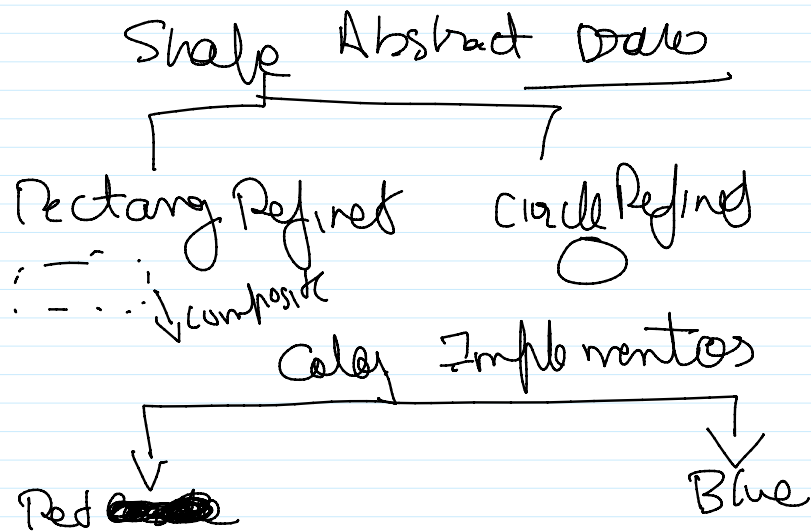 Shape Abstract Draw
Rectang Refined Circle Refined
composite
Color Implementos
Red Blue